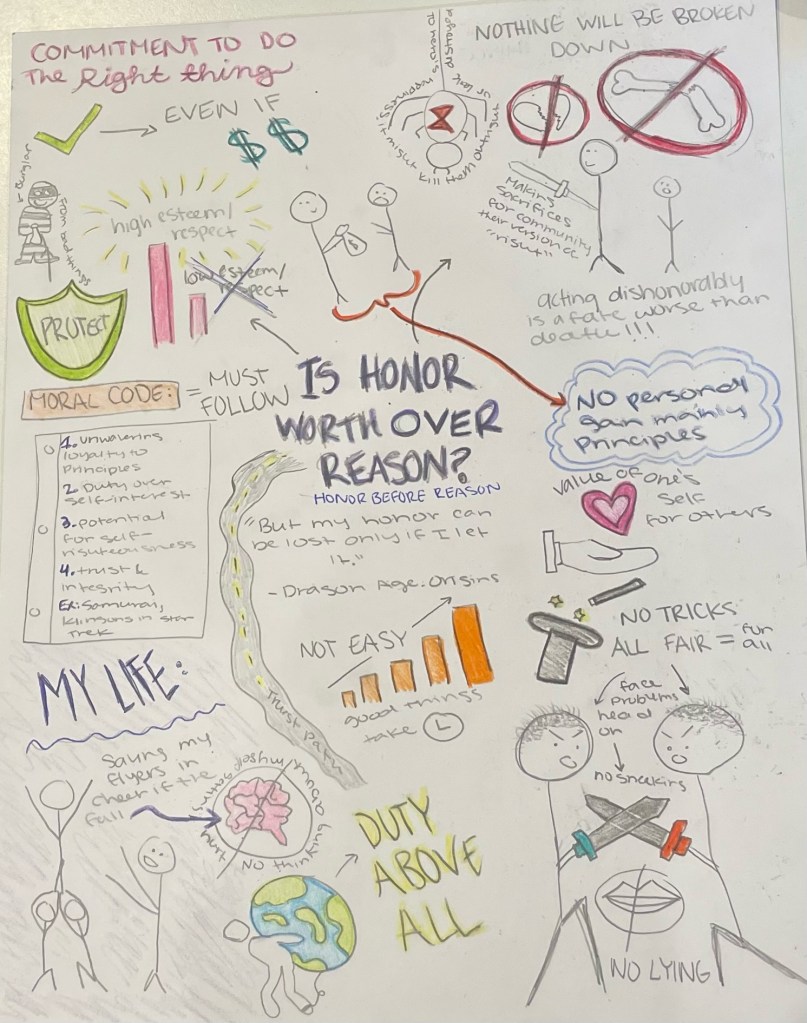 COMMITMENT TO DO
The Right thing
EVEN IF
$ $
burglar
from bad things
high esteem/
respect
low esteem/
respect
PROTECT
NOTHING WILL BE BROKEN
DOWN
happiness
it might kill them outright
MAKING
SACRIFICES
FOR COMMUNITY
their version of
acting dishonorably
is a fate worse than
death!!!
MORAL CODE:
= MUST
FOLLOW
1. unwavering
loyalty to
Principles
2. Duty over
self-interest
3. potential
for self-
righteousness
4. trust &
integrity
Ex: Samurai,
Klingons in star
Trek
IS HONOR
WORTH OVER
REASON?
HONOR BEFORE REASON
"But my honor can
be lost only if I let
it."
- Dragon Age: Origins
NO personal
gain mainly
Principles
value of one's
self
for others
NOT EASY
good things
take L
Trust Path
NO TRICKS
ALL FAIR = fun
all
face
problems
head
on
no sneaking
NO LYING
MY LIFE:
Saving my
flyers in
cheer if the
fall
NO thinking
about
myself
hurt
DUTY
ABOVE
ALL